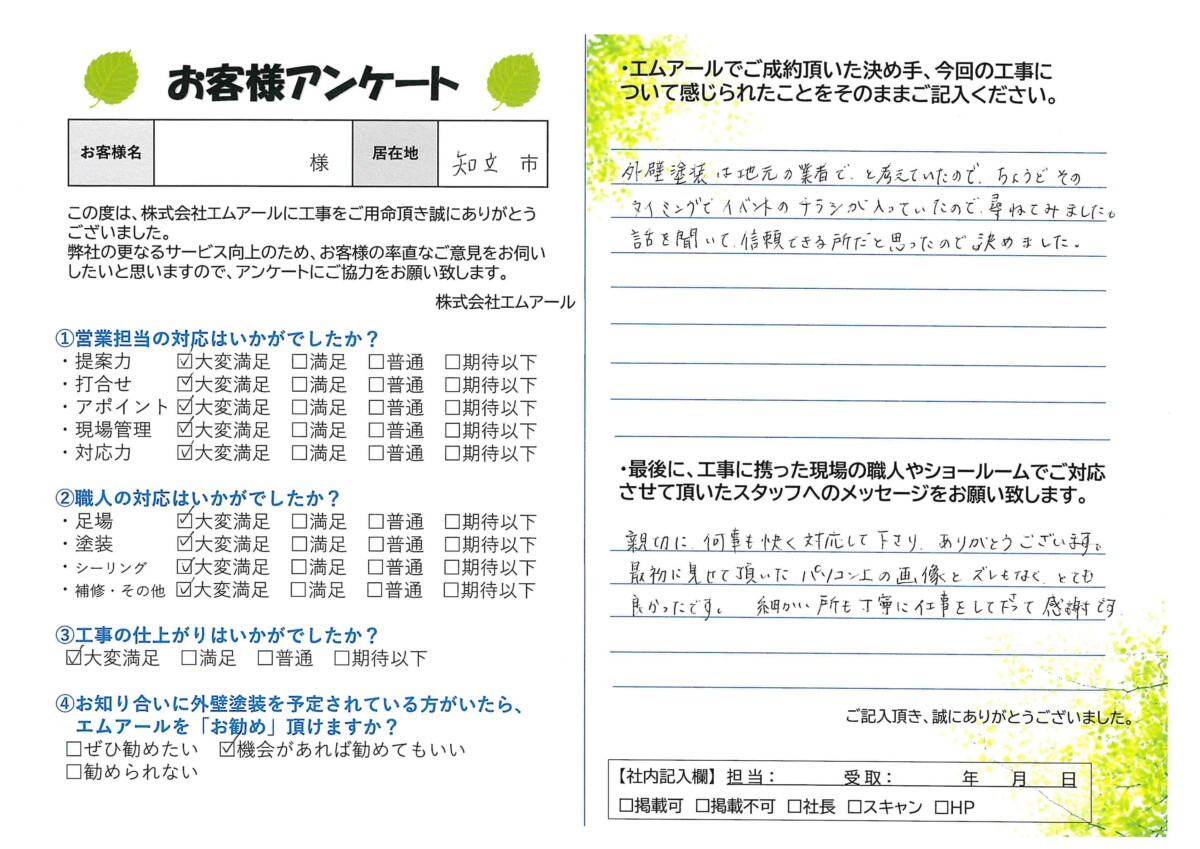 お客様アンケート
お客様名 様 居在地 知立 市
この度は、株式会社エムアールに工事をご用命頂き誠にありがとう
ございました。
弊社の更なるサービス向上のため、お客様の率直なご意見をお伺い
したいと思いますので、アンケートにご協力をお願い致します。
株式会社エムアール
①営業担当の対応はいかがでしたか？
・提案力 ☑大変満足 □満足 □普通 □期待以下
・打合せ ☑大変満足 □満足 □普通 □期待以下
・アポイント ☑大変満足 □満足 □普通 □期待以下
・現場管理 ☑大変満足 □満足 □普通 □期待以下
・対応力 ☑大変満足 □満足 □普通 □期待以下
②職人の対応はいかがでしたか？
・足場 ☑大変満足 □満足 □普通 □期待以下
・塗装 ☑大変満足 □満足 □普通 □期待以下
・シーリング ☑大変満足 □満足 □普通 □期待以下
・補修・その他 ☑大変満足 □満足 □普通 □期待以下
③工事の仕上がりはいかがでしたか？
☑大変満足 □満足 □普通 □期待以下
④お知り合いに外壁塗装を予定されている方がいたら、
エムアールを「お勧め」頂けますか？
□ぜひ勧めたい ☑機会があれば勧めてもいい
□勧められない
・エムアールでご成約頂いた決め手、今回の工事に
ついて感じられたことをそのままご記入ください。
外壁塗装は地元の業者で、と考えていたので、ちょうどその
タイミングでイベントのチラシが入っていたので、尋ねてみました。
話を聞いて、信頼できる所だと思ったので決めました。
・最後に、工事に携った現場の職人やショールームでご対応
させて頂いたスタッフへのメッセージをお願い致します。
親切に、何事も快く対応して下さり、ありがとうございます。
最初に見せて頂いたパソコン上の画像とズレもなく、とても
良かったです。 細かい所も丁寧に仕事をして下さって感謝です
ご記入頂き、誠にありがとうございました。
【社内記入欄】担当： 受取： 年 月 日
□掲載可 □掲載不可 □社長 □スキャン □HP